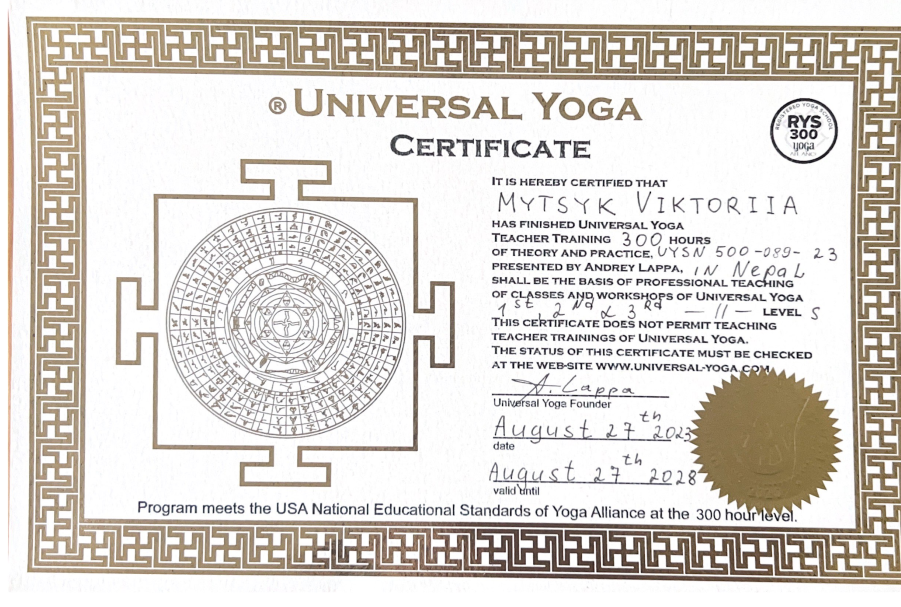 ® UNIVERSAL YOGA
CERTIFICATE
REGISTERED YOGA SCHOOL
RYS
300
yoga
ALLIANCE
IT IS HEREBY CERTIFIED THAT
MYTSYK VIKTORIIA
HAS FINISHED UNIVERSAL YOGA
TEACHER TRAINING 300 HOURS
OF THEORY AND PRACTICE, UYSN 500-089-23
PRESENTED BY ANDREY LAPPA, IN NepaL
SHALL BE THE BASIS OF PROFESSIONAL TEACHING
OF CLASSES AND WORKSHOPS OF UNIVERSAL YOGA
1st, 2Nd & 3Rd — // — LEVEL S
THIS CERTIFICATE DOES NOT PERMIT TEACHING
TEACHER TRAININGS OF UNIVERSAL YOGA.
THE STATUS OF THIS CERTIFICATE MUST BE CHECKED
AT THE WEB-SITE WWW.UNIVERSAL-YOGA.COM
A. Lappa
Universal Yoga Founder
August 27th 2023
date
August 27th 2028
valid until
Program meets the USA National Educational Standards of Yoga Alliance at the 300 hour level.